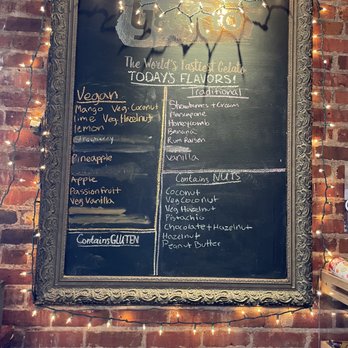 The World's Tastiest Gelato
TODAY'S FLAVORS!
Vegan
Mango Veg. Coconut
Lime Veg. Hazelnut
lemon
Strawberry
Pineapple
Apple
Passion Fruit
Veg Vanilla
Contains GLUTEN
Traditional
Strawberries + Cream
Marscapone
Honeycomb
Banana
Rum Raisin
Vanilla
Contains NUTS
Coconut
Veg Coconut
Veg Hazelnut
Pistachio
Chocolate + Hazelnut
Hazelnut
Peanut Butter